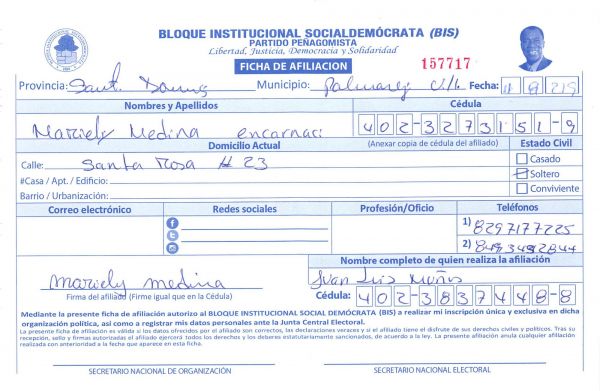 BLOQUE INSTITUCIONAL SOCIALDEMÓCRATA (BIS)
PARTIDO PEÑAGOMISTA
Libertad, Justicia, Democracia y Solidaridad
FICHA DE AFILIACION 157717
Provincia: Sant. Doming Municipio: Palmarejo Fecha:
Nombres y Apellidos Cédula
Mariely Medina encarnaci 402-3273151-9
Domicilio Actual (Anexar copia de cédula del afiliado) Estado Civil
Calle: Santa Rosa # 23 Casado
#Casa / Apt. / Edificio: Soltero
Barrio / Urbanización: Conviviente
Correo electrónico Redes sociales Profesión/Oficio Teléfonos
1) 8297177225
2) 8493492844
Nombre completo de quien realiza la afiliación
mariely medina Juan Luis Muñoz
Firma del afiliado (Firme igual que en la Cédula) Cédula: 402-3837448-8
Mediante la presente ficha de afiliación autorizo al BLOQUE INSTITUCIONAL SOCIAL DEMÓCRATA (BIS) a realizar mi inscripción única y exclusiva en dicha
organización política, así como a registrar mis datos personales ante la Junta Central Electoral.
La presente ficha de afiliación es válida si los datos ofrecidos por el afiliado son correctos, las declaraciones veraces y si el afiliado tiene el disfrute de sus derechos civiles y políticos. Tras su
recepción, sello y firmas autorizadas el afiliado ejercerá todos los derechos y los deberes estatutariamente sancionados, de acuerdo a la ley. La presente afiliación anula cualquier afiliación
realizada con anterioridad a la fecha que aparece en esta ficha.
SECRETARIO NACIONAL DE ORGANIZACIÓN SECRETARIO NACIONAL ELECTORAL